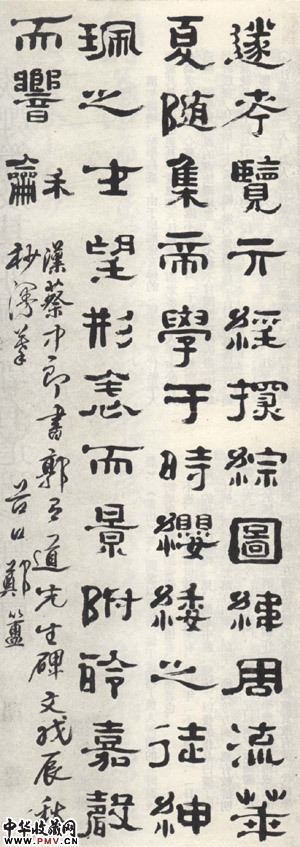 遂考覽六經探綜圖緯周流華
夏随集帝學于時纓緌之徒紳
珮之士望形表而景附聆嘉聲
而響龢
漢蔡中郎書郭有道先生碑文戊辰秋
杪筆
谷口鄭簠
中华收藏网
www.PMV.CN